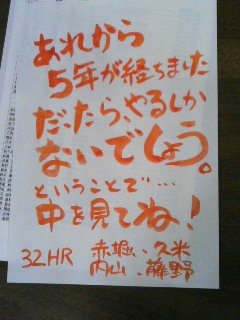 あれから
5年が経ちました
だったら、やるしか
ないでしょう。
ということで…
中を見てね!
32HR 赤堀、久米
内山、藤野